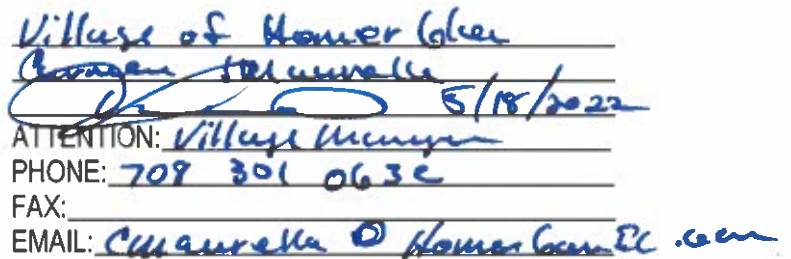 Village of Homer Glen
Maurella
5/18/2022
ATTENTION: Village Manager
PHONE: 708 301 0632
FAX:
EMAIL: cmaurella @